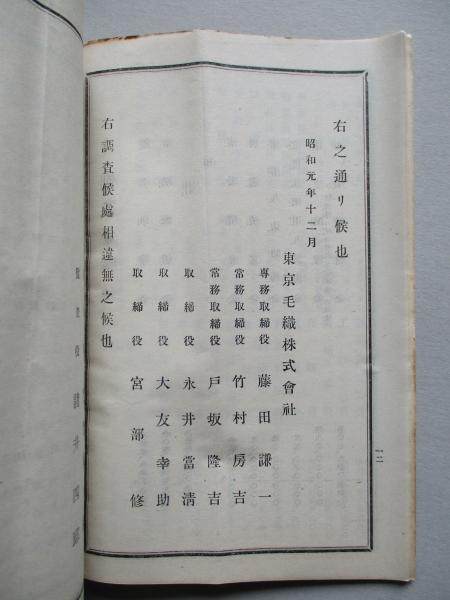 右之通リ候也
昭和元年十二月
東京毛織株式會社
專務取締役 藤田謙一
常務取締役 竹村房吉
常務取締役 戸坂隆吉
取締役 永井當淸
取締役 大友幸助
取締役 宮部修
右調査候處相違無之候也
一二